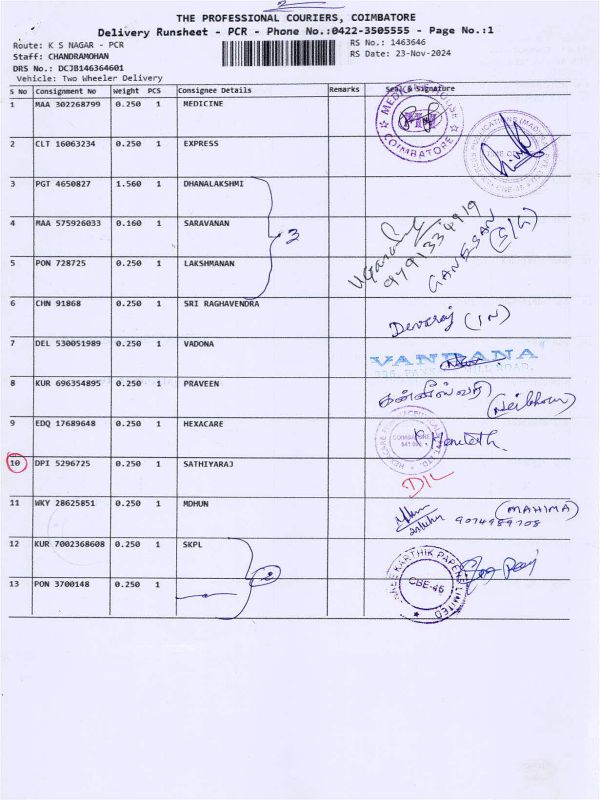 2
THE PROFESSIONAL COURIERS, COIMBATORE
Delivery Runsheet - PCR - Phone No.:0422-3505555 - Page No.:1
Route: K S NAGAR - PCR RS No.: 1463646
Staff: CHANDRAMOHAN RS Date: 23-Nov-2024
DRS No.: DCJB146364601
Vehicle: Two Wheeler Delivery
S No Consignment No Weight PCS Consignee Details Remarks Seal & Signature
1 MAA 302268799 0.250 1 MEDICINE
COIMBATORE
2 CLT 16063234 0.250 1 EXPRESS
3 PGT 4650827 1.560 1 DHANALAKSHMI
4 MAA 575926033 0.160 1 SARAVANAN 3
9791334919 GANESAN (S/G)
5 PON 728725 0.250 1 LAKSHMANAN
6 CHN 91868 0.250 1 SRI RAGHAVENDRA Devaraj (IN)
7 DEL 530051989 0.250 1 VADONA VANDANA
8 KUR 696354895 0.250 1 PRAVEEN
9 EDQ 17689648 0.250 1 HEXACARE COIMBATORE
10 DPI 5296725 0.250 1 SATHIYARAJ D/L
11 WKY 28625851 0.250 1 MOHUN (MAHIMA)
9074989708
12 KUR 7002368608 0.250 1 SKPL 2
SREE KARTHIK PAPERS LIMITED CBE-46
13 PON 3700148 0.250 1